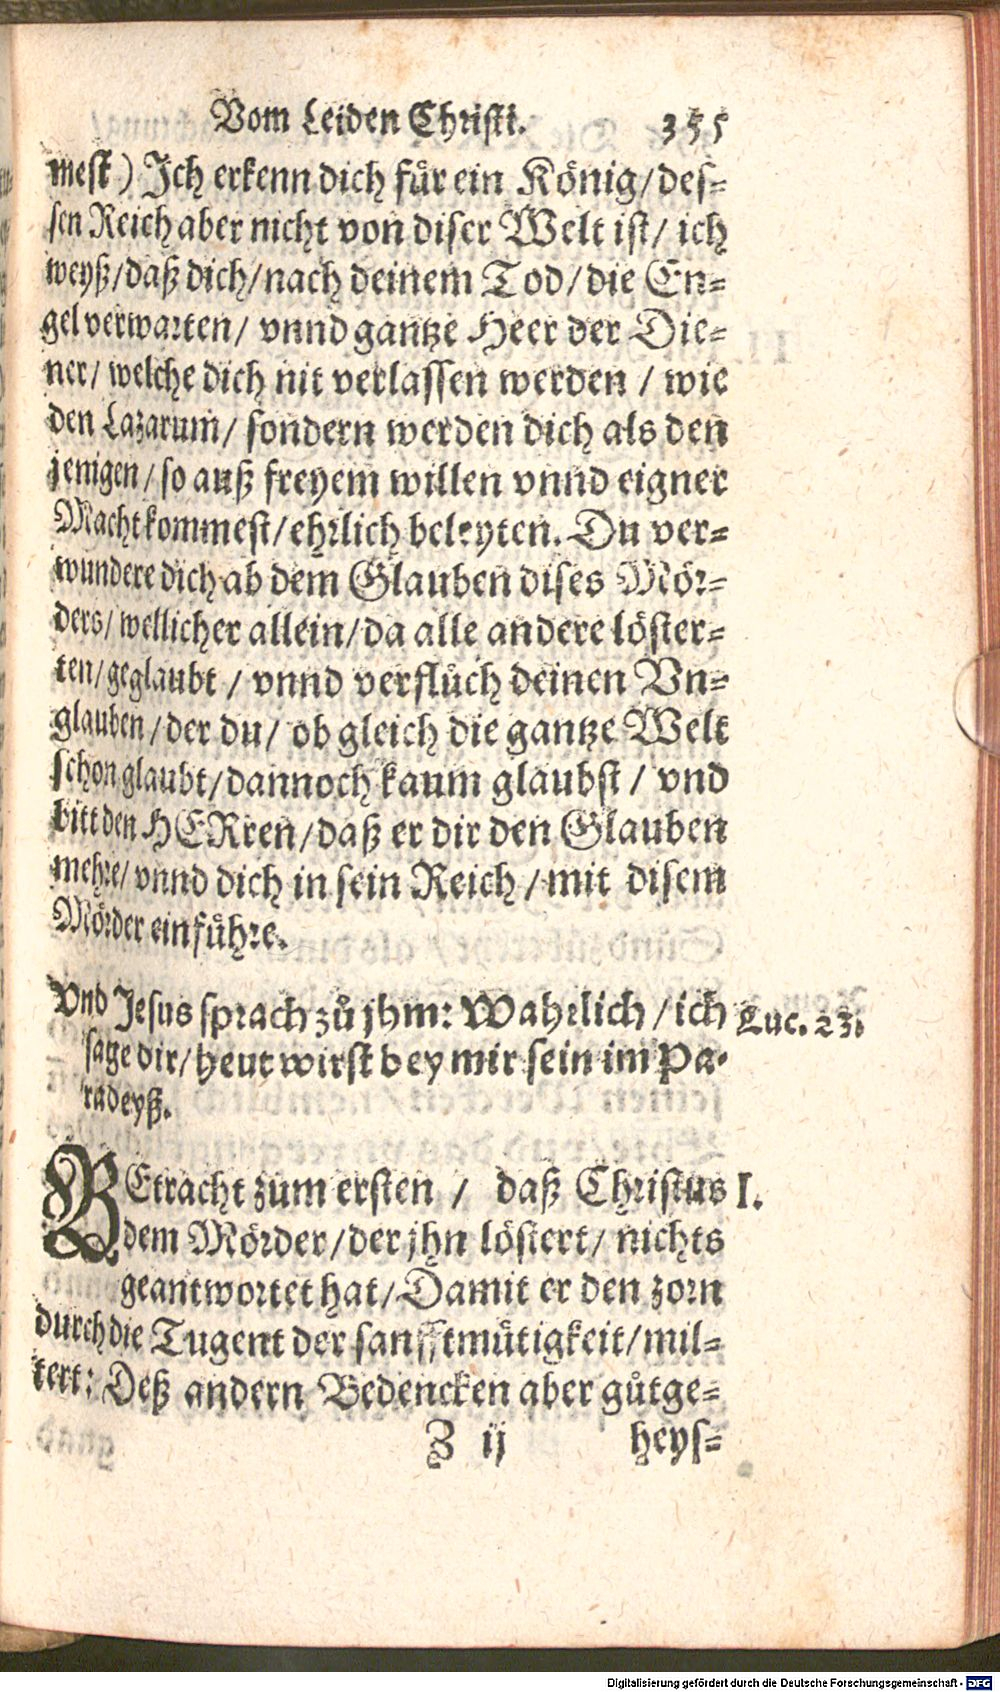 Vom Leiden Christi. 355
mest) Ich erkenn dich für ein König/ des-
sen Reich aber nicht von diser Welt ist/ ich
weyß/ daß dich/ nach deinem Tod/ die En-
gel verwarten/ vnnd gantze Heer der Die-
ner/ welche dich nit verlassen werden / wie
den Lazarum/ sondern werden dich als den
jenigen/ so auß freyem willen vnnd eigner
Macht kommest/ ehrlich beleyten. Du ver-
wundere dich ab dem Glauben dises Mör-
ders/ wellicher allein/ da alle andere löster-
ten/ geglaubt / vnnd verflůch deinen Vn-
glauben/ der du/ ob gleich die gantze Welt
schon glaubt/ dannoch kaum glaubst / vnd
bitt den HERren/ daß er dir den Glauben
mehre/ vnnd dich in sein Reich / mit disem
Mörder einführe.
Vnd Jesus sprach zů jhm: Wahrlich / ich
sage dir/ heut wirst bey mir sein im Pa-
radeyß.
Luc. 23.
BEtracht zum ersten / daß Christus
dem Mörder/ der jhn löstert/ nichts
geantwortet hat/ Damit er den zorn
durch die Tugent der sanfftmütigkeit/ mil-
tert: Deß andern Bedencken aber gůtge-
I.
Z ij heys-
Digitalisierung gefördert durch die Deutsche Forschungsgemeinschaft - DFG